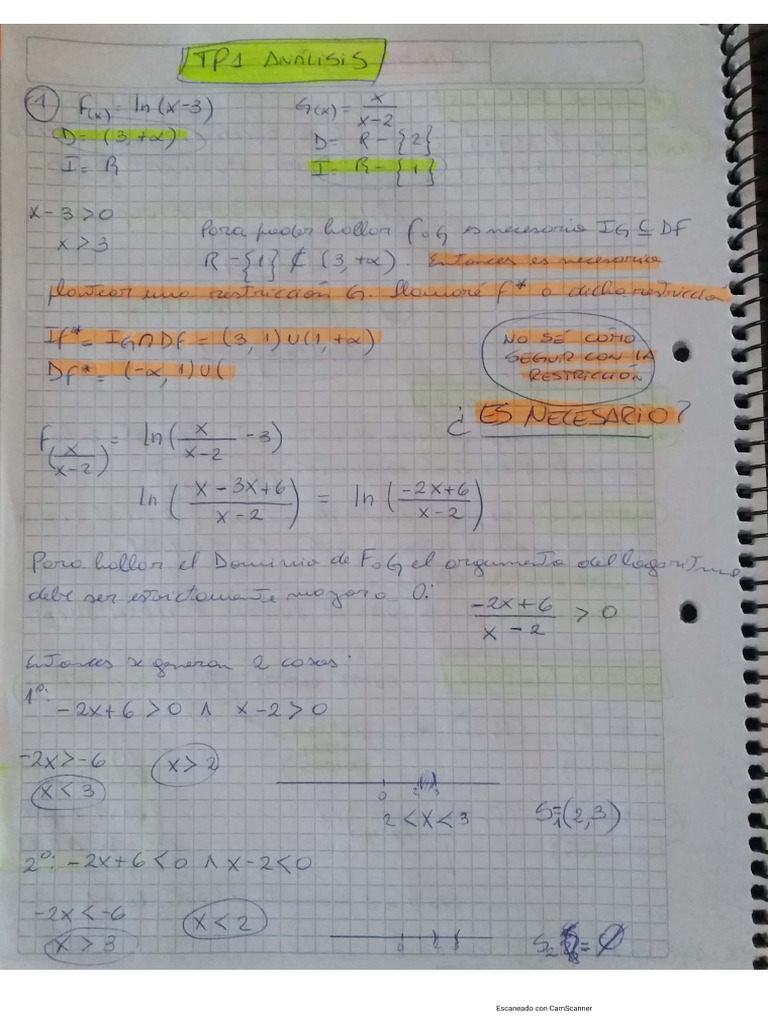 TP1 ANÁLISIS
1 F(x) = ln(x-3) G(x) = x/(x-2)
D = (3, +∝) D = R - {2}
I = R I = R - {1}
x - 3 > 0
x > 3
Para poder hallar FoG es necesario IG ⊆ DF
R - {1} ⊄ (3, +∝). Entonces es necesario
plantear una restricción G. Llamaré f* a dicha restricción
If* = IG ∩ Df = (3, 1) ∪ (1, +∝)
Df* = (-∝, 1) ∪ (
NO SÉ CÓMO
SEGUIR CON LA
RESTRICCIÓN
¿ES NECESARIO?
F(x/(x-2)) = ln(x/(x-2) - 3)
ln((x - 3x + 6)/(x - 2)) = ln((-2x+6)/(x - 2))
Para hallar el Dominio de FoG el argumento del logaritmo
debe ser estrictamente mayor a 0:
(-2x+6)/(x - 2) > 0
Entonces se generan 2 casos:
1º: -2x+6 > 0 ∧ x-2 > 0
-2x > -6 x > 2
x < 3
0 2 3
2 < x < 3 S1 = (2,3)
2º: -2x+6 < 0 ∧ x-2 < 0
-2x < -6 x < 2
x > 3
S2 = ∅
Escaneado con CamScanner